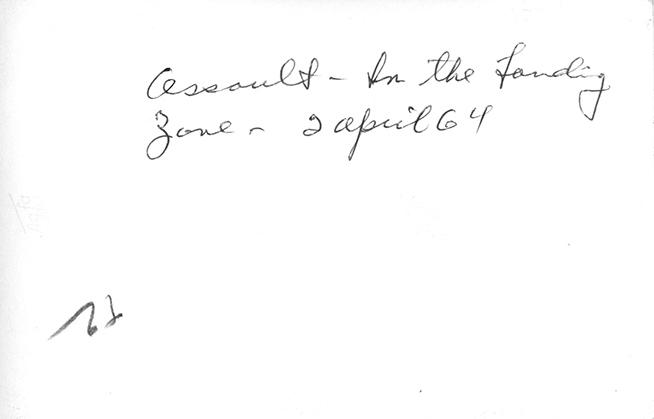 Assault - In the Landing
Zone - 2 April 64